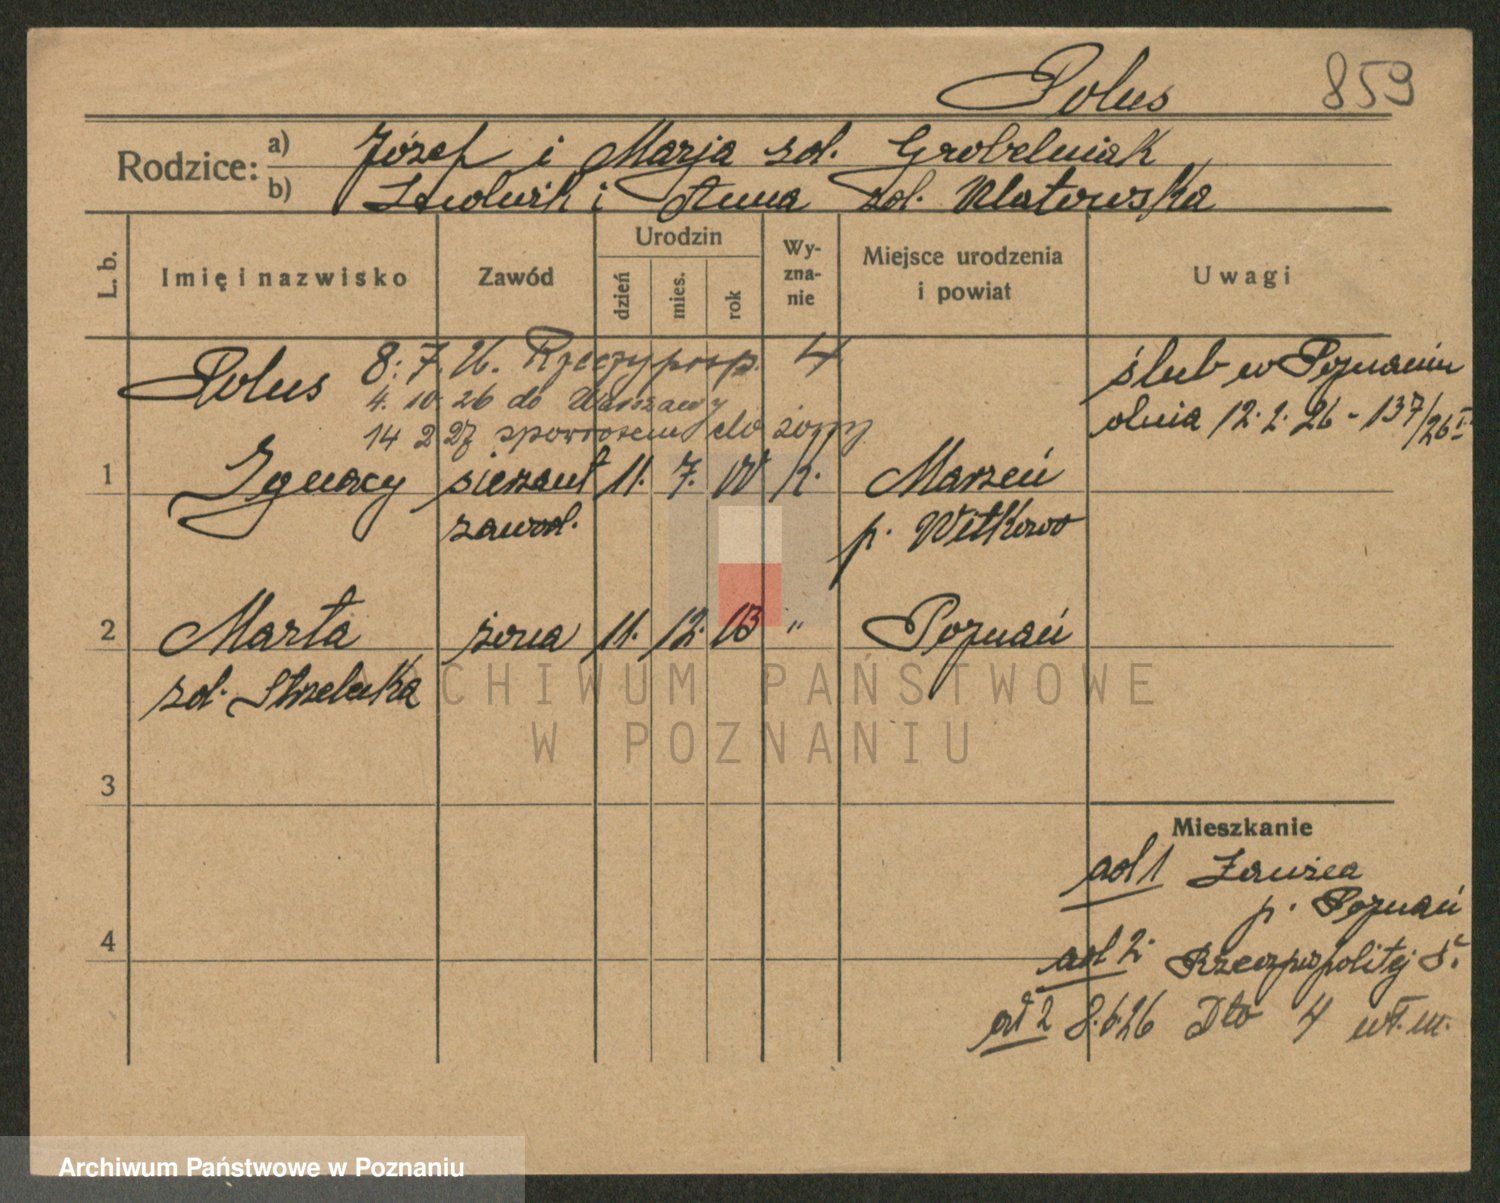 Polus 859
Rodzice: a) Józef i Marja zd. Grobelniak
b) Ludwik i Anna zd. Klatowska
L. b.
Imię i nazwisko
Zawód
Urodzin
dzień
mies.
rok
Wy-
zna-
nie
Miejsce urodzenia
i powiat
Uwagi
Polus 8. 7. 26. Rzeczyposp. 4
4. 10. 26 do Warszawy
14 2 27 spowrotem do żony
ślub w Poznaniu
dnia 12. 2. 26 - 137/26 I
1 Ignacy sierżant 11. 7. 00 k. Marzeń
zawod. p. Witkowo
2 Marta żona 11. 12. 03 " Poznań
zd. Strzelecka
3
4
Mieszkanie
ad 1 Ławica
p. Poznań
ad 2. Rzeczpospolitej
ad 2 8.6.26 Dto 4 wł. m.
ARCHIWUM PAŃSTWOWE
W POZNANIU
Archiwum Państwowe w Poznaniu